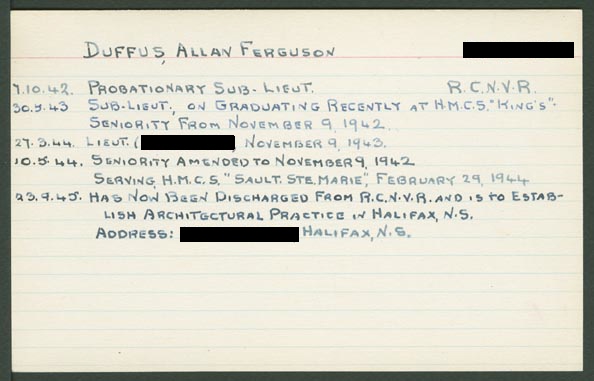 DUFFUS, ALLAN FERGUSON
7.10.42. PROBATIONARY SUB-LIEUT. R.C.N.V.R.
30.5.43 SUB-LIEUT., ON GRADUATING RECENTLY AT H.M.C.S. "KING'S".
SENIORITY FROM NOVEMBER 9, 1942.
27.3.44. LIEUT. ( , NOVEMBER 9, 1943.
10.5.44. SENIORITY AMENDED TO NOVEMBER 9, 1942
SERVING, H.M.C.S. "SAULT. STE. MARIE", FEBRUARY 29, 1944
23.9.45. HAS NOW BEEN DISCHARGED FROM R.C.N.V.R. AND IS TO ESTAB-
LISH ARCHITECTURAL PRACTICE IN HALIFAX, N.S.
ADDRESS: HALIFAX, N.S.